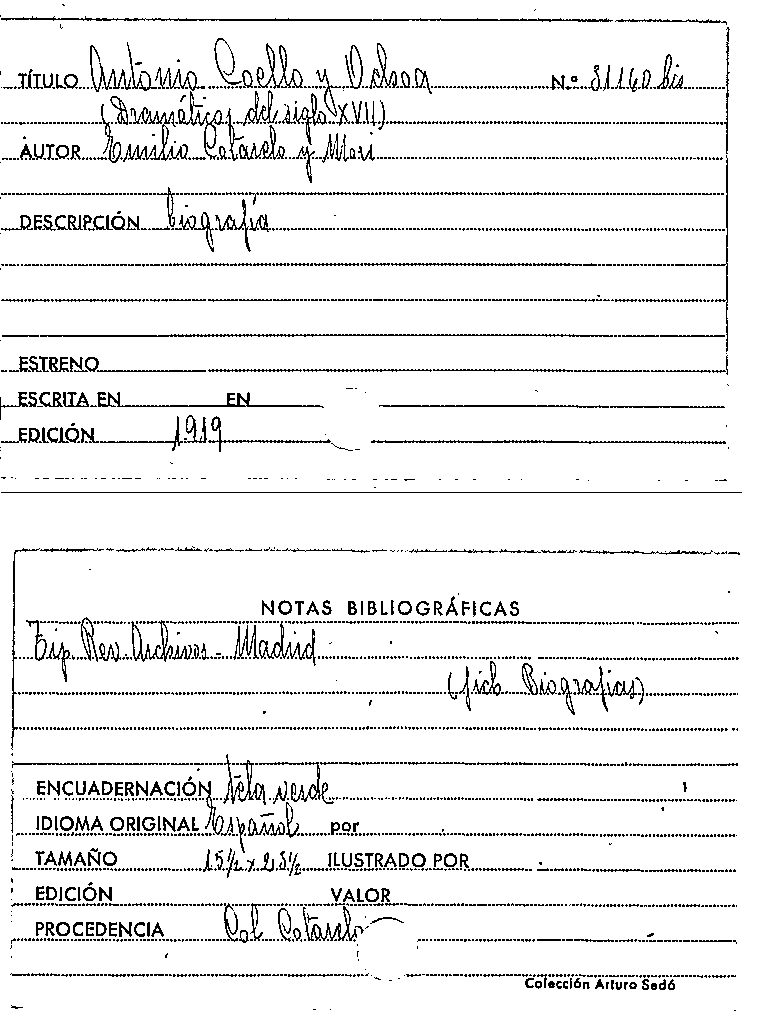 TÍTULO Antonio Coello y Ochoa N.º 81160 bis
(Dramáticos del siglo XVII)
AUTOR Emilio Cotarelo y Mori
DESCRIPCIÓN biografía
ESTRENO
ESCRITA EN EN
EDICIÓN 1919
NOTAS BIBLIOGRÁFICAS
Tip. Rev. Archivos - Madrid
(fich Biografias)
ENCUADERNACIÓN tela verde
IDIOMA ORIGINAL Español por
TAMAÑO 15½ x 23½ ILUSTRADO POR
EDICIÓN VALOR
PROCEDENCIA Col Cotarelo
Colección Arturo Sedó